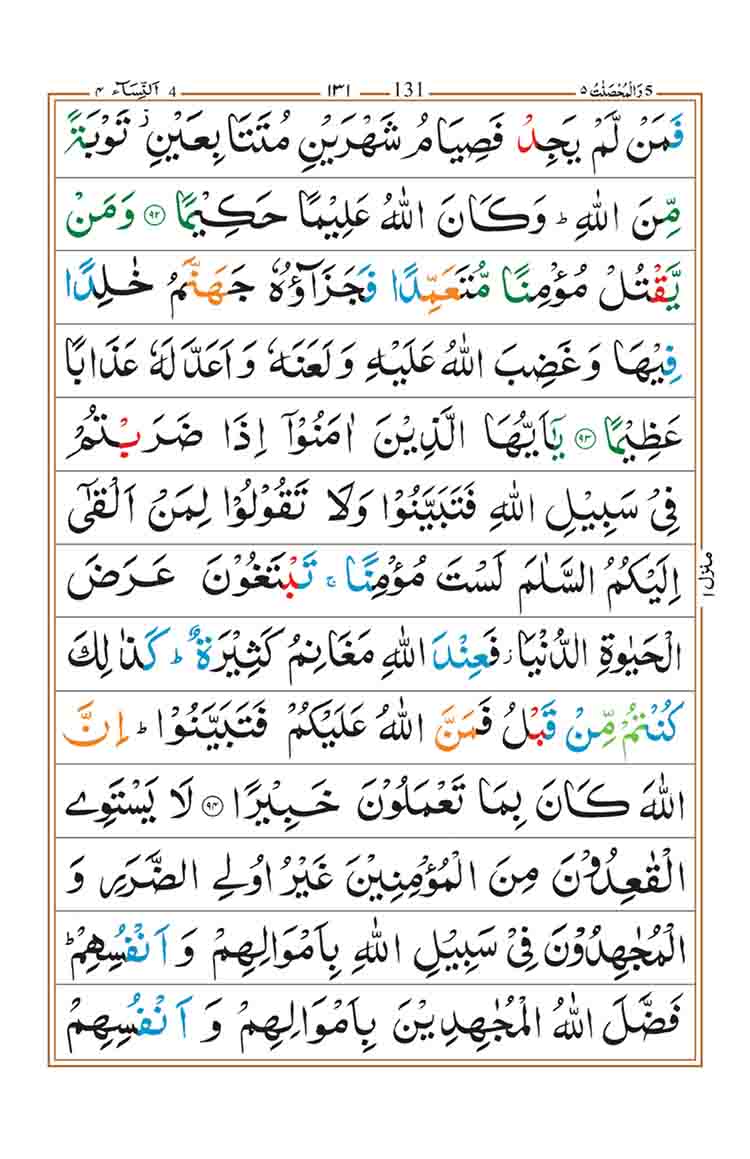 5 وَالْمُحْصَنٰتُ ٥ 131 ١٣١ 4 اَلنِّسَآء ٤
فَمَنْ لَّمْ يَجِدْ فَصِيَامُ شَهْرَيْنِ مُتَتَابِعَيْنِ ۫ تَوْبَةً
مِّنَ اللّٰهِ ؕ وَكَانَ اللّٰهُ عَلِيْمًا حَكِيْمًا ۝۹۲ وَمَنْ
يَّقْتُلْ مُؤْمِنًا مُّتَعَمِّدًا فَجَزَآؤُهٗ جَهَنَّمُ خٰلِدًا
فِيْهَا وَغَضِبَ اللّٰهُ عَلَيْهِ وَلَعَنَهٗ وَاَعَدَّ لَهٗ عَذَابًا
عَظِيْمًا ۝۹۳ يٰۤاَيُّهَا الَّذِيْنَ اٰمَنُوْۤا اِذَا ضَرَبْتُمْ
فِيْ سَبِيْلِ اللّٰهِ فَتَبَيَّنُوْا وَلَا تَقُوْلُوْا لِمَنْ اَلْقٰۤى
اِلَيْكُمُ السَّلٰمَ لَسْتَ مُؤْمِنًا ۚ تَبْتَغُوْنَ عَرَضَ
الْحَيٰوةِ الدُّنْيَا ؗ فَعِنْدَ اللّٰهِ مَغَانِمُ كَثِيْرَةٌ ؕ كَذٰلِكَ
كُنْتُمْ مِّنْ قَبْلُ فَمَنَّ اللّٰهُ عَلَيْكُمْ فَتَبَيَّنُوْا ؕ اِنَّ
اللّٰهَ كَانَ بِمَا تَعْمَلُوْنَ خَبِيْرًا ۝۹۴ لَا يَسْتَوِي
الْقٰعِدُوْنَ مِنَ الْمُؤْمِنِيْنَ غَيْرُ اُولِي الضَّرَرِ وَ
الْمُجٰهِدُوْنَ فِيْ سَبِيْلِ اللّٰهِ بِاَمْوَالِهِمْ وَ اَنْفُسِهِمْ ؕ
فَضَّلَ اللّٰهُ الْمُجٰهِدِيْنَ بِاَمْوَالِهِمْ وَ اَنْفُسِهِمْ
منزل ١